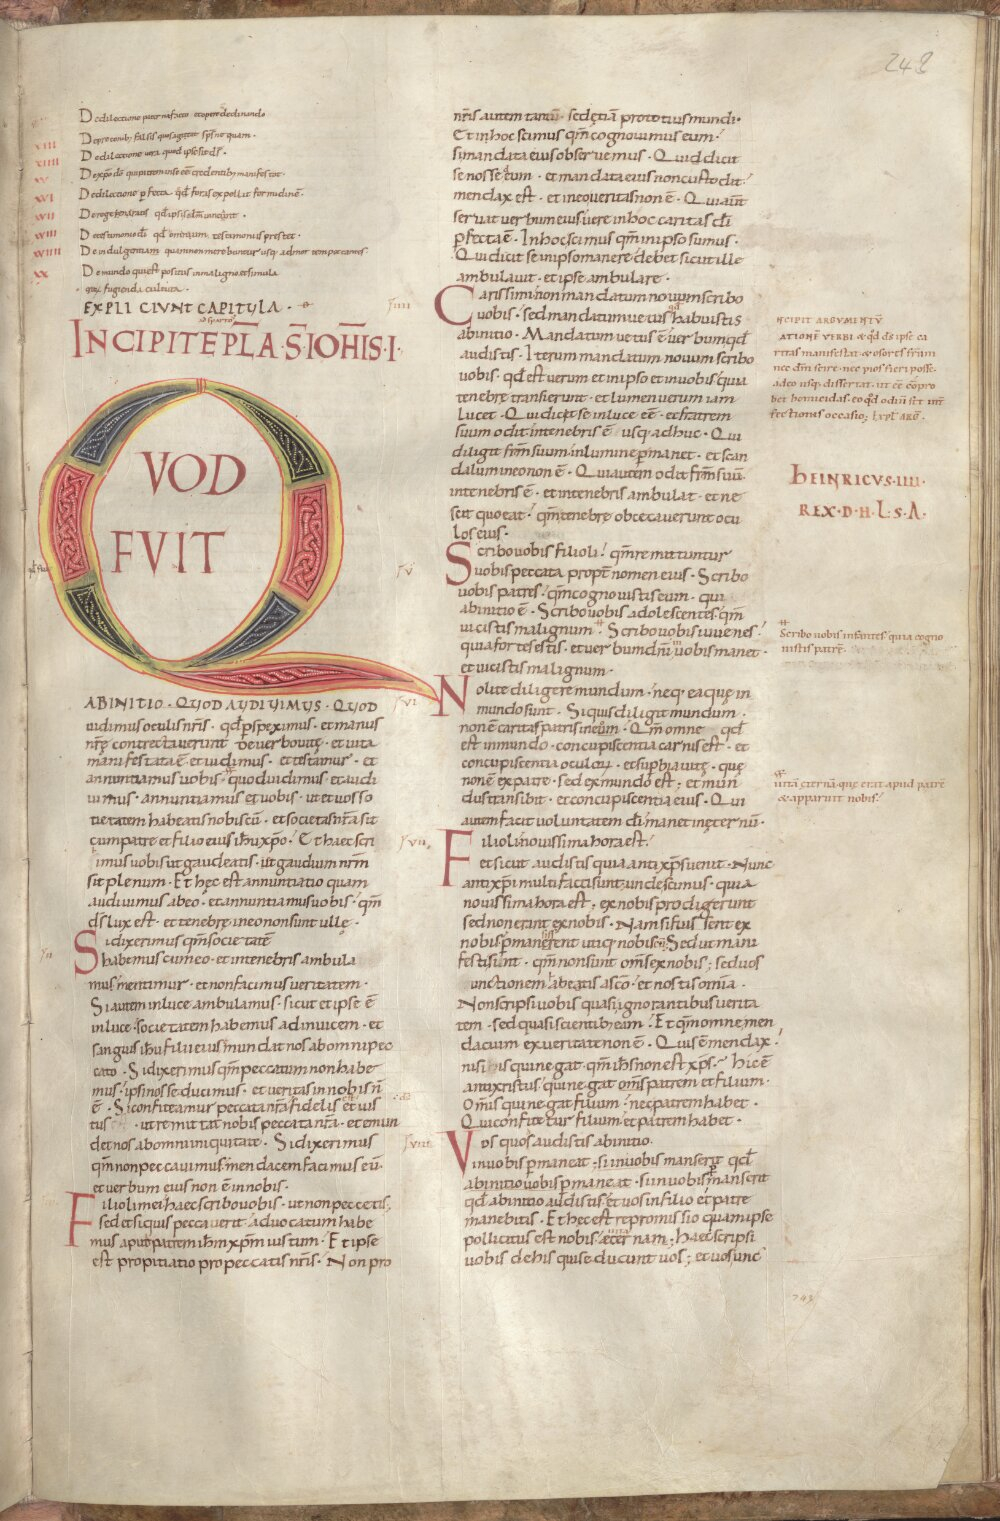 248
De dilectione
XIII
XIIII De dilectione vera quod ipse sit ds̄.
XV
XVI De dilectione pfecta qd̄ foras expellit formidinē.
XVII
XVIII De testimonio dī
XVIIII De indulgentiam
XX De mundo qui est positus in maligno. et simula
fugienda cultura.
EXPLICIUNT CAPITULA.
INCIPIT EPL̄A S̄ IOH̄IS I.
QVOD
FVIT
AB INITIO. QUOD AUDIUIMUS. QUOD
uidimus oculis nr̄is. qd̄ pspeximus. et manus
nr̄ę contrectauerunt de uerbo uitę. et uita
manifestata ē et uidimus. et testamur. et
annuntiamus uobis. quod uidimus et audi
uimus. annuntiamus et uobis. ut et uos so
cietatem habeatis nobiscū. et societas nr̄a sit
cum patre et filio eius ih̄u xp̄o. Et haec scri
bimus uobis ut gaudeatis. ut gaudium nr̄m
sit plenum. Et hęc est annuntiatio quam
audiuimus ab eo. et annuntiamus uobis. qm̄
ds̄ lux est. et tenebrę in eo non sunt ullę.
Si dixerimus qm̄ societatē
habemus cum eo. et in tenebris ambula
mus. mentimur. et non facimus ueritatem.
Si autem in luce ambulamus. sicut et ipse ē
in luce. societatem habemus ad inuicem. et
sanguis ih̄u filii eius mundat nos ab omni pec
cato. Si dixerimus qm̄ peccatum non habe
mus. ipsi nos seducimus. et ueritas in nobis n̄
ē. Si confiteamur peccata nr̄a. fidelis et ius
tus ut remittat nobis peccata nr̄a. et emun
det nos ab omni iniquitate. Si dixerimus
qm̄ non peccauimus. mendacem facimus eū.
et uerbum eius non ē in nobis.
Filioli mei haec scribo uobis. ut non peccetis.
sed et si quis peccauerit. aduocatum habe
mus apud patrem ih̄m xp̄m iustum. Et ipse
est propitiatio pro peccatis nr̄is. Non pro
nr̄is autem tantū. sed etiā pro totius mundi.
Et in hoc scimus qm̄ cognouimus eum.
si mandata eius obseruemus. Qui dicit
se nosse eum. et mandata eius non custodit.
mendax est. et in eo ueritas non ē. Qui aūt
seruat uerbum eius. uere in hoc caritas dī
pfecta ē. In hoc scimus qm̄ in ipso sumus.
Qui dicit se in ipso manere. debet sicut ille
ambulauit. et ipse ambulare.
IIII Carissimi non mandatum nouum scribo
uobis. sed mandatum uetus qd̄ habuistis
ab initio. Mandatum uetus ē uerbum qd̄
audistis. Iterum mandatum nouum scribo
uobis. qd̄ est uerum et in ipso et in uobis. quia
tenebrę transierunt. et lumen uerum iam
lucet. Qui dicit se in luce eē. et fratrem
suum odit. in tenebris ē usq; adhuc. Qui
diligit frm̄ suum. in lumine pmanet. et scan
dalum in eo non ē. Qui autem odit frm̄ suū.
in tenebris ē. et in tenebris ambulat. et ne
scit quo eat. qm̄ tenebrę obcecauerunt ocu
los eius.
V Scribo uobis filioli. qm̄ remittuntur
uobis peccata propt̄ nomen eius. Scribo
uobis patres. qm̄ cognouistis eum. qui
ab initio ē. Scribo uobis adolescentes. qm̄
uicistis malignum. Scribo uobis iuuenes.
quia fortes estis. et uerbum dn̄i in uobis manet.
et uicistis malignum.
VI Nolite diligere mundum. neq; ea quę in
mundo sunt. Si quis diligit mundum.
non ē caritas patris in eum. Qm̄ omne qd̄
est in mundo. concupiscentia carnis est. et
concupiscentia oculorum. et supbia uitę. quę
non ē ex patre. sed ex mundo est. et mun
dus transibit. et concupiscentia eius. Qui
autem facit uoluntatem dī. manet in ęternū.
VII Filioli nouissima hora est.
et sicut audistis quia antixps̄ uenit. Nunc
antixp̄i multi facti sunt. unde scimus. quia
nouissima hora est. ex nobis prodigerunt
sed non erant ex nobis. Nam si fuissent ex
nobis. pmansissent utiq; nobiscū. Sed ut mani
festi sunt. qm̄ non sunt om̄s ex nobis; sed uos
unctionem habeatis a scō. et nostis omnia.
Non scripsi uobis quasi ignorantibus uerita
tem. sed quasi scientib; eam. Et qm̄ omne men
dacium ex ueritate non ē. Quis ē mendax.
nisi is qui negat. qm̄ ih̄s non est xps̄. Hic ē
antixristus qui negat om̄s patrem et filium.
Om̄is qui negat filium. nec patrem habet.
Qui confitetur filium et patrem habet.
VIII Vos quos audistis ab initio.
in uobis pmaneat. si in uobis manserit qd̄
ab initio uobis pmaneat. si in uobis pmanserit
qd̄ ab initio audistis et uos in filio et patre
manebitis. Et hec est repromissio quam ipse
pollicitus est nobis. uitā aeternam; haec scripsi
uobis de his qui seducunt uos; et uos unc
INCIPIT ARGUMENTŪ
RATIONE VERBI & qd̄ ds̄ ipse ca
ritas manifestat. & osores frm̄
nec dm̄ scire. nec pios fieri posse.
adeo usq; disserat. ut eē cōpro
bet homicidas. eo qd̄ odiū sit int
fectionis occasio; EXPL̄ ARḠ.
HEINRICVS. IIII.
REX. D. H. L. S. A.
Scribo uobis infantes quia cogno
uistis patrē
uitā ęternā. que erat apud patrē
& apparuit nobis.
243